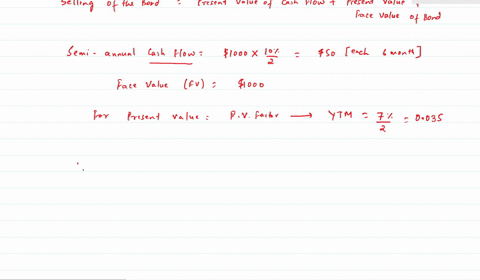 Selling of the Bond = Present Value of Cash Flow + Present Value of
Face Value of Bond
Semi-annual Cash Flow = $1000 × 10%/2 = $50 [each 6 month]
Face Value (FV) = $1000
For Present Value = P.V. Factor → YTM = 7%/2 = 0.035
∴